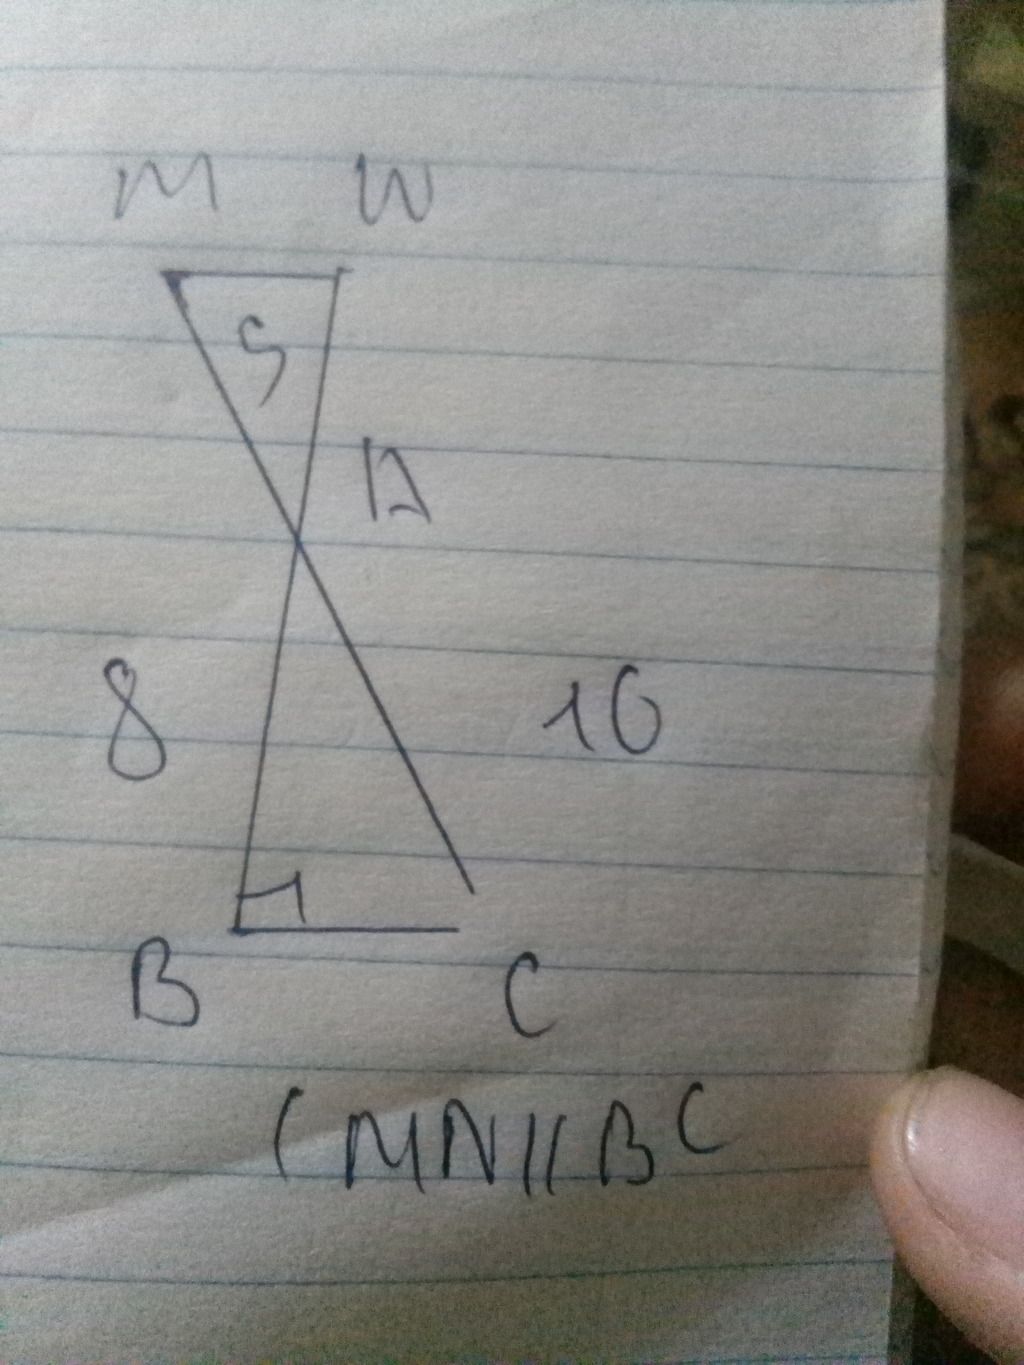 M N
5
A
8 10
B C
(MN//BC